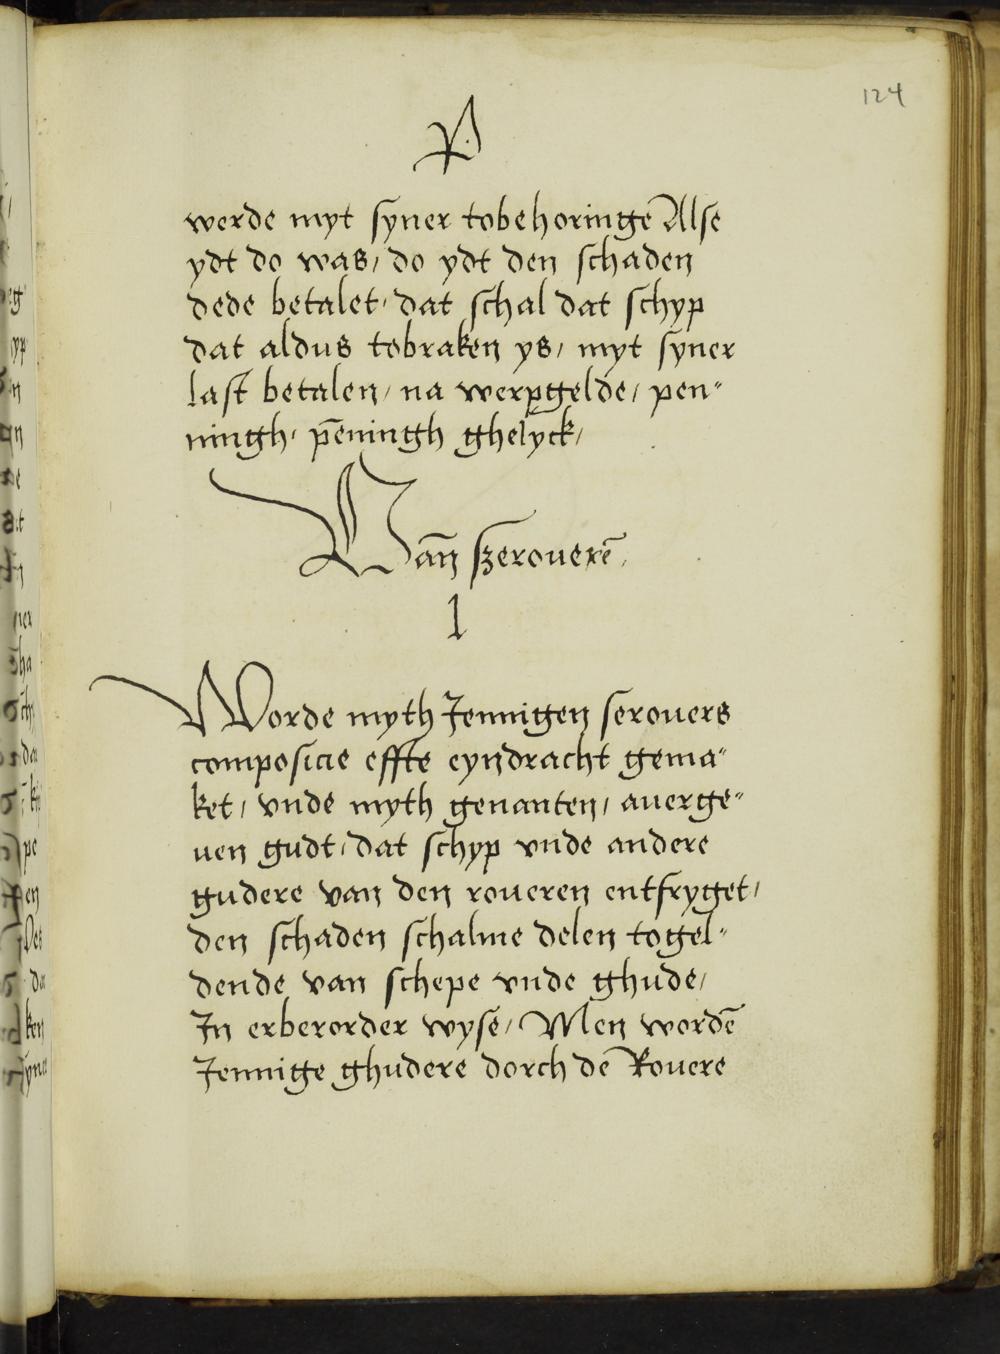 124
P
werde myt syner tobehoringe Alse
ydt do was/ do ydt den schaden
dede betalet/ dat schal dat schyp
dat aldus tobraken ys/ myt syner
last betalen/ na werpgelde/ pen"
ningh/ pēningh ghelyck/
Uān szerouerē/
1
Worde myth Jennigen serouers
composicie effte eyndracht gema"
ket/ vnde myth genanten/ auerge"
uen gudt/ dat schyp vnde andere
gudere van den roueren entfryget/
den schaden schalme delen togel"
dende van schepe vnde ghude/
In erberorder wyse/ Men wordē
Jennige ghudere dorch dē Rouere